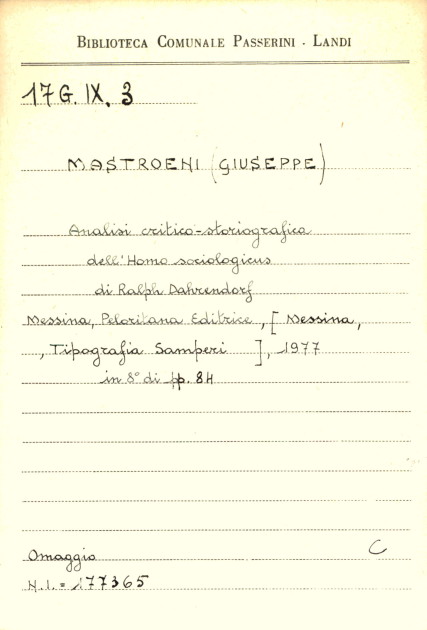 BIBLIOTECA COMUNALE PASSERINI - LANDI
17 G. IX. 3
MASTROENI (GIUSEPPE)
Analisi critico-storiografica
dell'Homo sociologicus
di Ralph Dahrendorf
Messina, Peloritana Editrice, [Messina,
, Tipografia Samperi ], 1977
in 8° di pp. 84
Omaggio C
N.I. = 177365